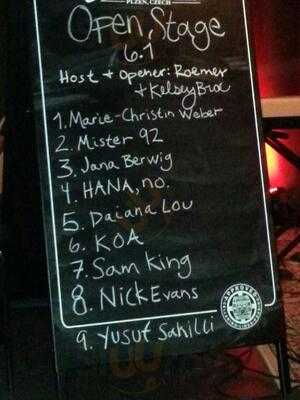 PLZEN, CZECH
Open Stage
6.1
Host + Opener: Roemer
+ Kelsey Bra
1. Marie-Christin Weber
2. Mister 92
3. Jana Berwig
4. HANA, no.
5. Daiana Lou
6. KOA
7. Sam King
8. Nick Evans
9. Yusuf Sakilli